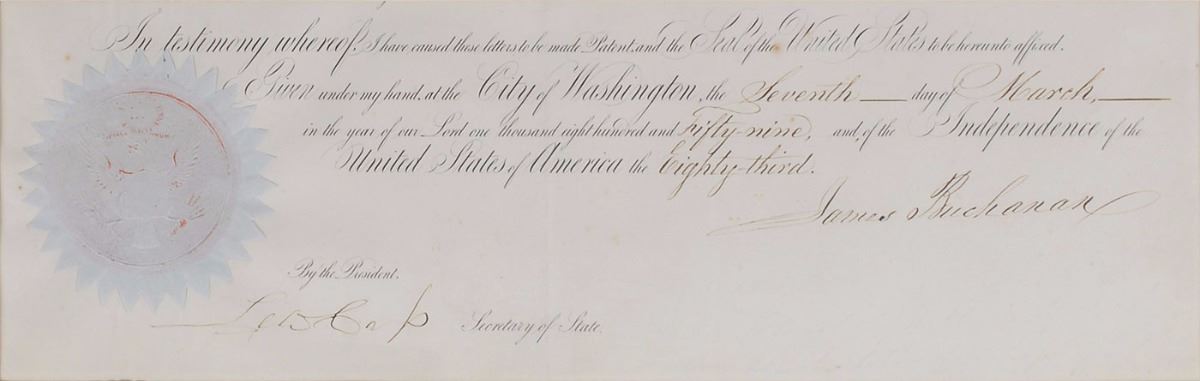 In testimony whereof, I have caused these letters to be made Patent, and the Seal of the United States to be hereunto affixed.
Given under my hand, at the City of Washington, the Seventh day of March,
in the year of our Lord one thousand eight hundred and Fifty-nine, and, of the Independence of the
United States of America the Eighty-third.
James Buchanan
By the President.
Lew Cass
Secretary of State.